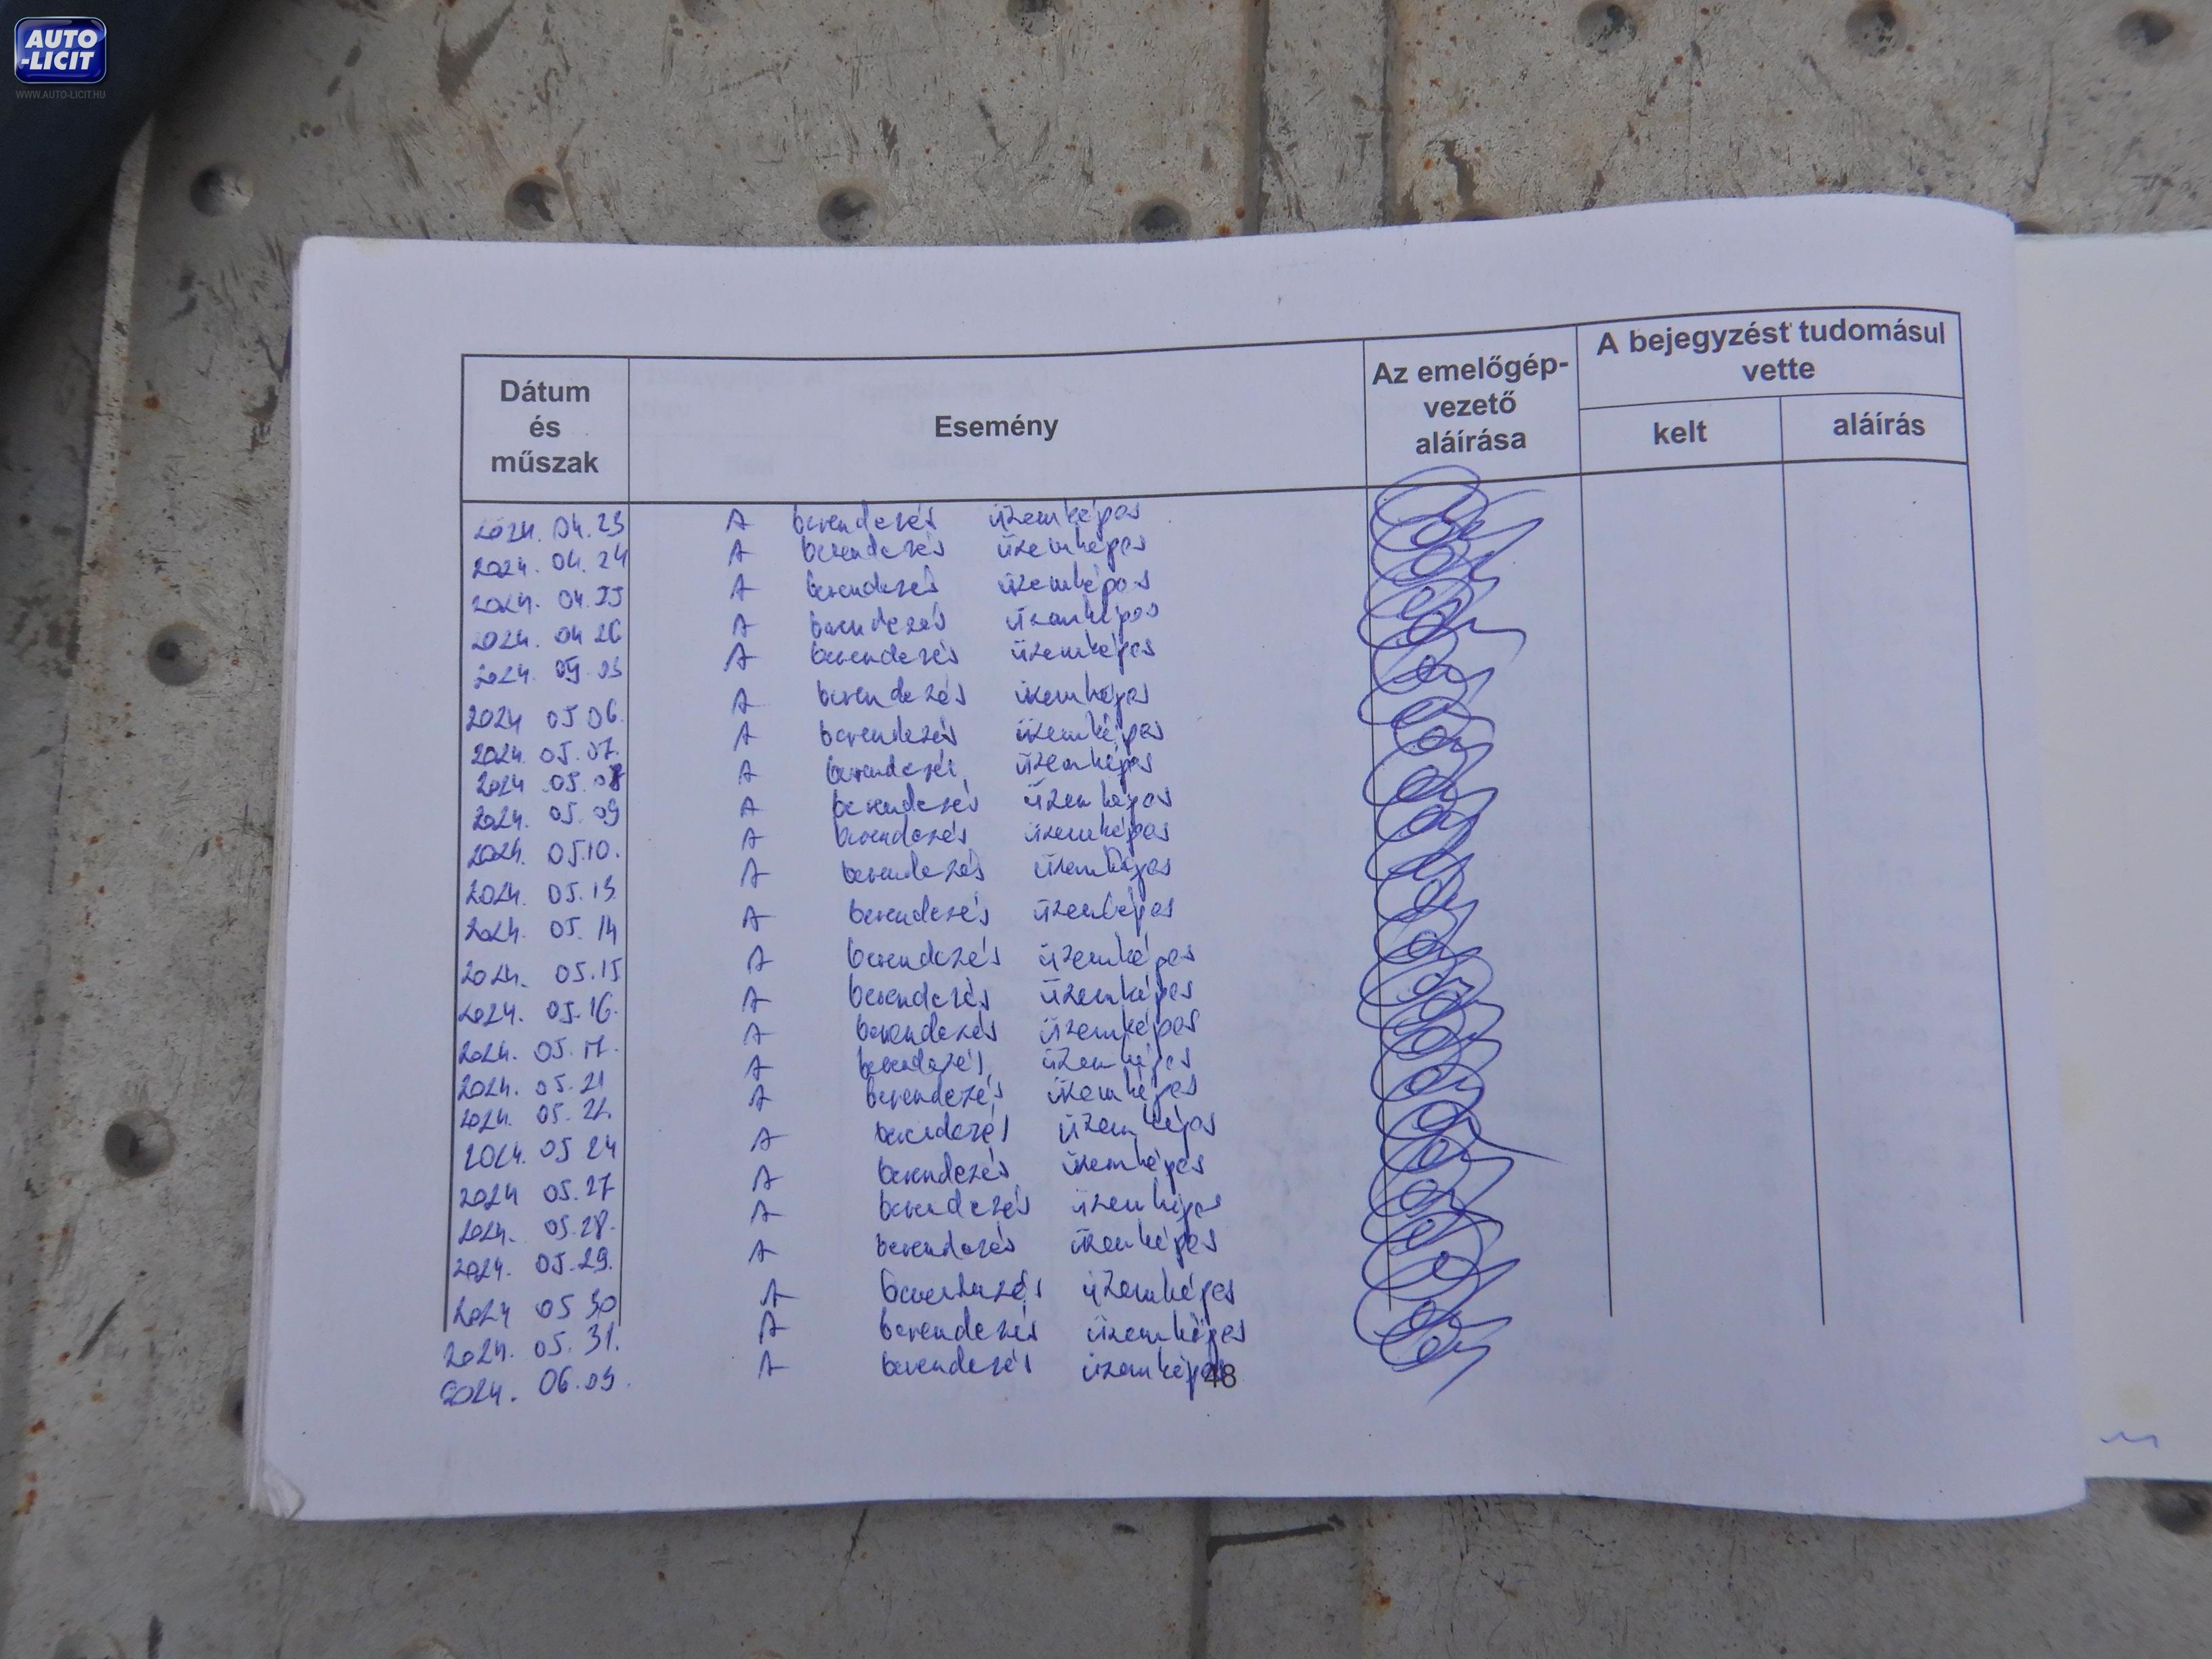 AUTO
-LICIT
WWW.AUTO-LICIT.HU
Dátum és műszak
Esemény
Az emelőgép-vezető aláírása
A bejegyzést tudomásul vette
kelt
aláírás
2024. 04. 23 A berendezés üzemképes
2024. 04. 24 A berendezés üzemképes
2024. 04. 25 A berendezés üzemképes
2024. 04 26 A berendezés üzemképes
2024. A berendezés üzemképes
2024 05 06. A berendezés üzemképes
2024. 05. 07. A berendezés üzemképes
2024 05. 08 A berendezés üzemképes
2024. 05. 09 A berendezés üzemképes
2024. 05.10. A berendezés üzemképes
2024. 05.13 A berendezés üzemképes
2024. 05. 14 A berendezés üzemképes
2024. 05.15 A berendezés üzemképes
2024. 05.16. A berendezés üzemképes
2024. 05.17. A berendezés üzemképes
2024. 05.21 A berendezés üzemképes
2024. 05.22. A berendezés üzemképes
2024. 05 24 A berendezés üzemképes
2024 05.27 A berendezés üzemképes
2024. 05.28. A berendezés üzemképes
2024. 05.29. A berendezés üzemképes
2024 05 30 A berendezés üzemképes
2024. 05. 31. A berendezés üzemképes
2024. 06. A berendezés üzemképes
48